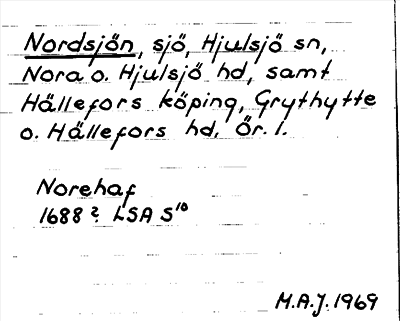 Nordsjön, sjö, Hjulsjö sn,
Nora o. Hjulsjö hd, samt
Hällefors köping, Grythytte
o. Hällefors hd, Ör. l.
Norehaf
1688? LSA S¹⁰
M.A.J. 1969